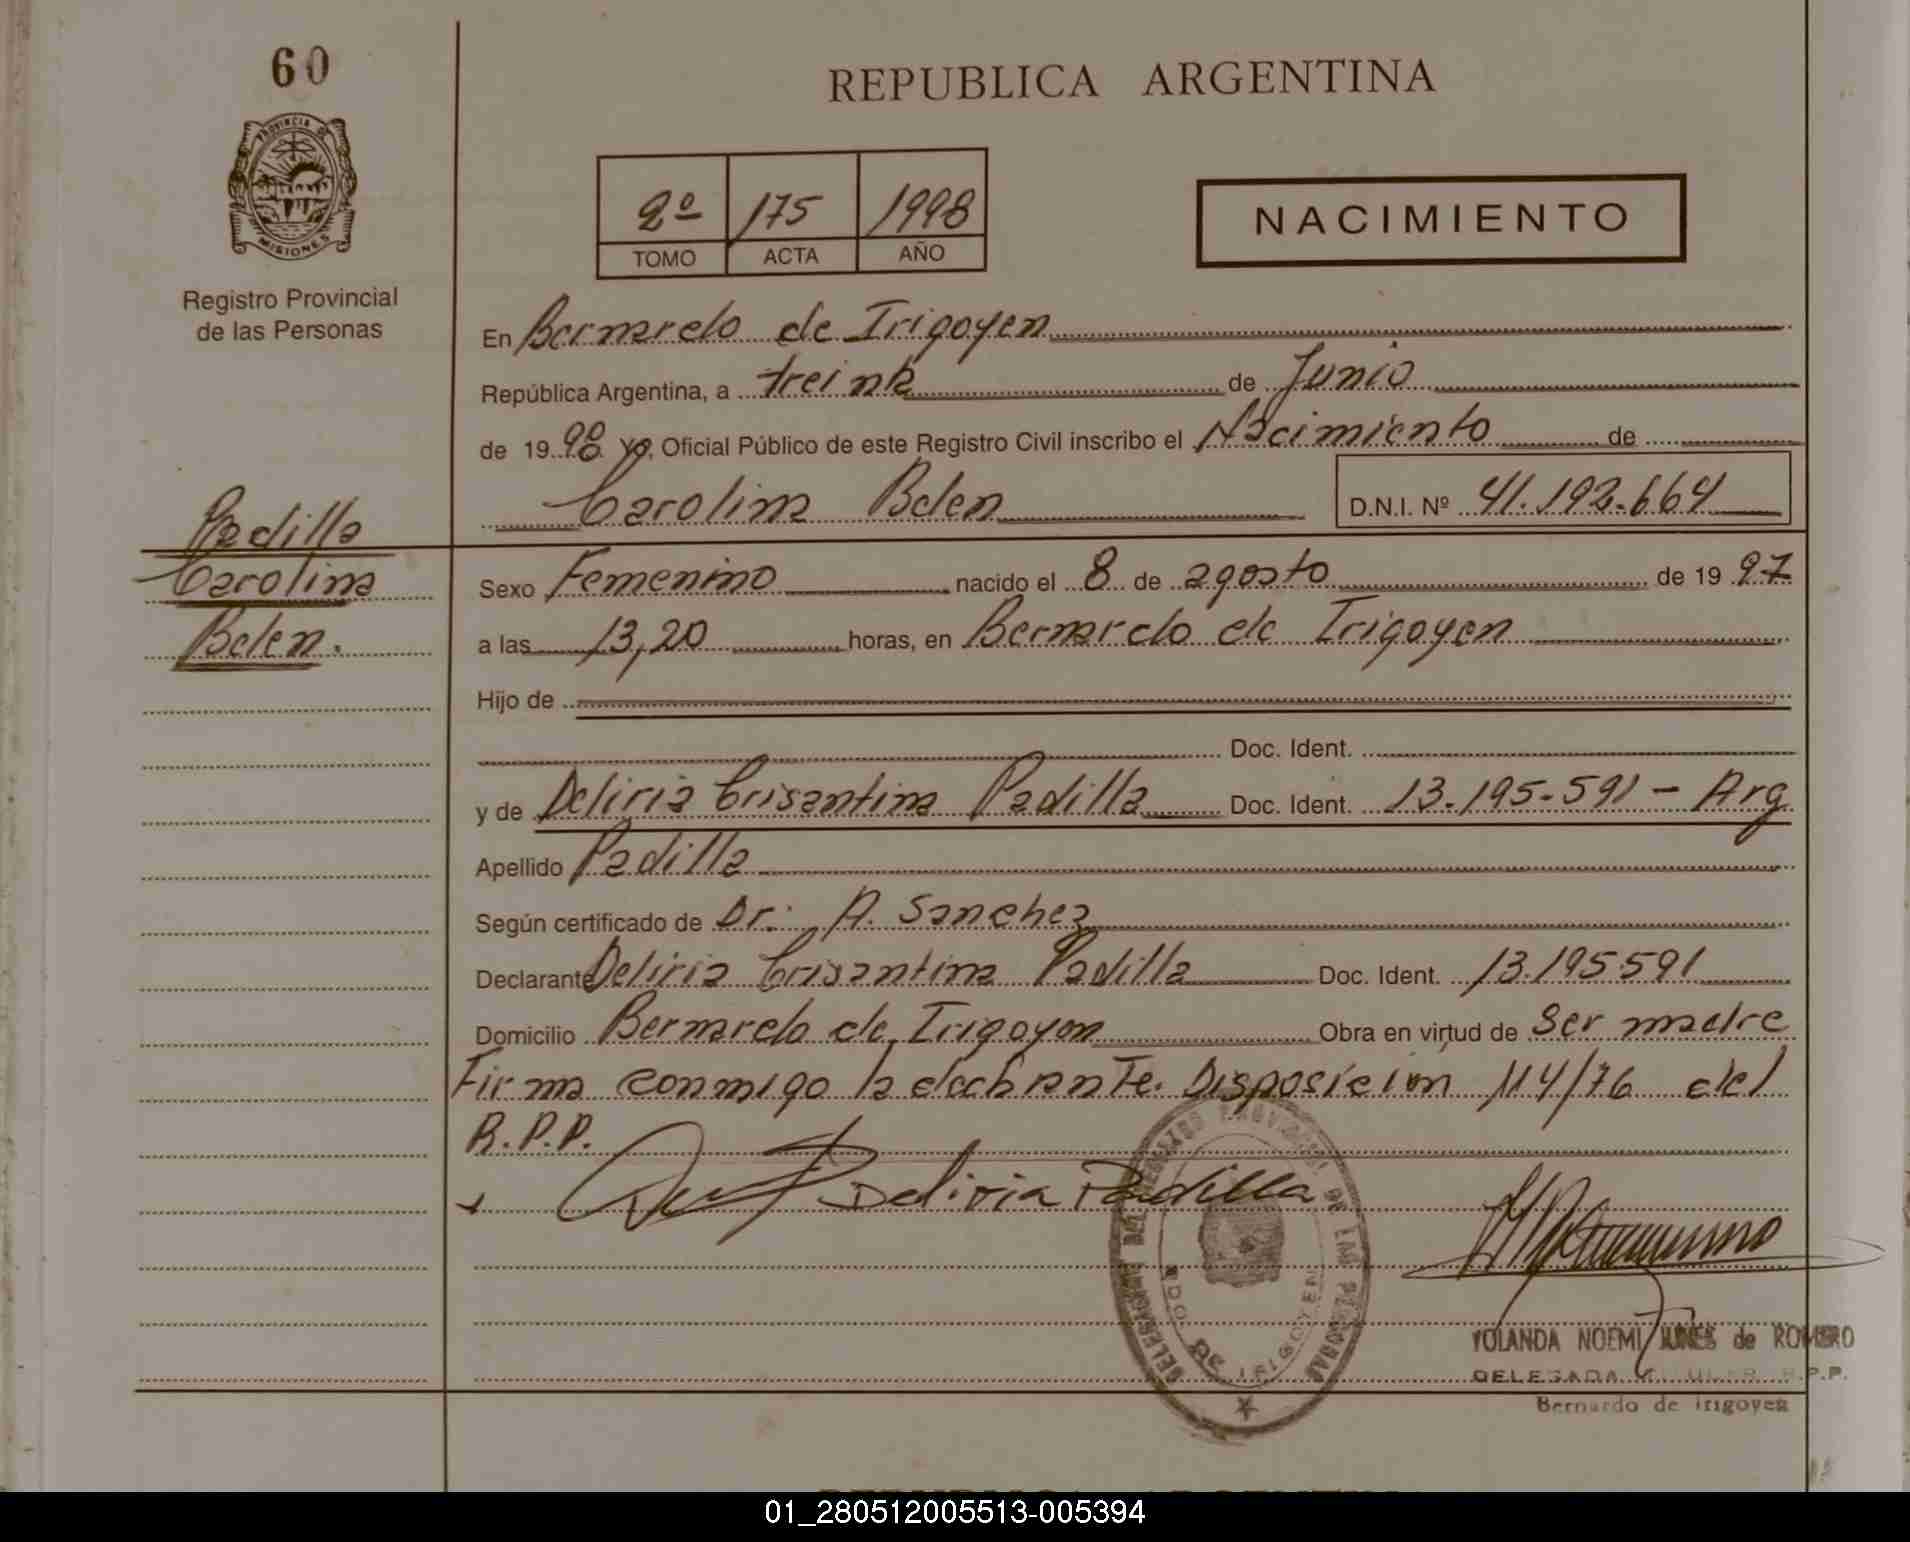 60
REPUBLICA ARGENTINA
PROVINCIA DE
MISIONES
Registro Provincial
de las Personas
2º 175 1998
TOMO ACTA AÑO
NACIMIENTO
En Bernardo de Irigoyen
República Argentina, a treinta de Junio
de 19 98 Yo, Oficial Público de este Registro Civil inscribo el Nacimiento de
Carolina Belen D.N.I. Nº 41.192.664
Padilla
Carolina
Belen.
Sexo Femenino nacido el 8 de agosto de 19 97
a las 13,20 horas, en Bernardo de Irigoyen
Hijo de
Doc. Ident.
y de Deliria Crisantina Padilla Doc. Ident. 13.195.591 - Arg
Apellido Padilla
Según certificado de Dr: A. Sanchez
Declarante Deliria Crisantina Padilla Doc. Ident. 13.195.591
Domicilio Bernardo de Irigoyen Obra en virtud de Ser madre
Firma conmigo la declarante. Disposición 114/76 del
R.P.P.
Deliria Padilla
DELEGACION DEL REGISTRO PROVINCIAL DE LAS PERSONAS
BDO. DE IRIGOYEN
YOLANDA NOEMI de ROMERO
DELEGADA TITULAR R.P.P.
Bernardo de Irigoyen
01_280512005513-005394